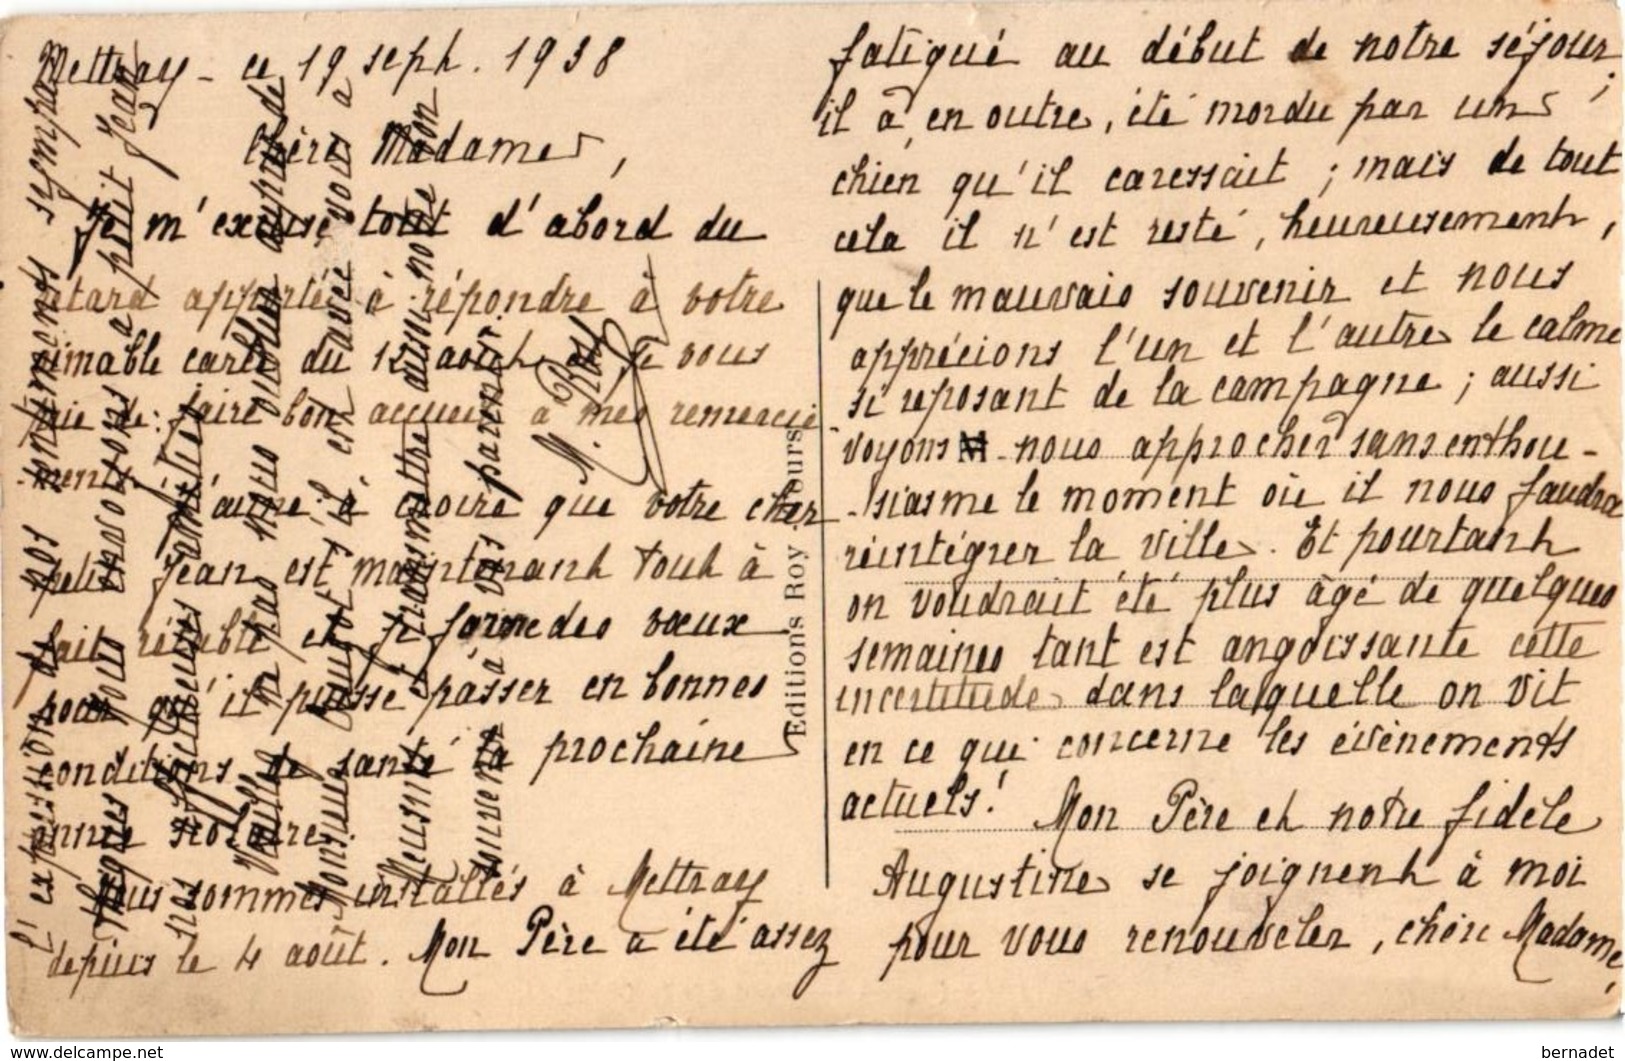 Mettray - ce 19 sept. 1938
Chère Madame,
Je m'excuse tout d'abord du
retard apporté à répondre à votre
aimable carte du 12 août. Je vous
prie de faire bon accueil à mes remercie-
ments. J'aime à croire que votre cher
petit Jean est maintenant tout à
fait rétabli et je forme des vœux
pour qu'il puisse passer en bonnes
conditions de santé la prochaine
année scolaire.
Nous sommes installés à Mettray
depuis le 4 août. Mon Père a été assez
fatigué au début de notre séjour;
il a, en outre, été mordu par un
chien qu'il caressait ; mais de tout
cela il n'est resté, heureusement,
que le mauvais souvenir et nous
apprécions l'un et l'autre le calme
si reposant de la campagne ; aussi
voyons-nous approcher sans enthou-
-siasme le moment où il nous faudra
réintégrer la ville. Et pourtant
on voudrait été plus âgé de quelques
semaines tant est angoissante cette
incertitude dans laquelle on vit
en ce qui concerne les évènements
actuels! Mon Père et notre fidèle
Augustine se joignent à moi
pour vous renouveler, chère Madame,
l'expression de nos sentiments sympa-
thiques. Nous envoyons à petit Jean
nos affectueuses amitiés.
Veuillez ne pas nous oublier auprès de
Monsieur
s'il est avec vous à
Meusnes et transmettre aussi notre bon
souvenir à vos parents.
M.
Editions Roy - Tours
delcampe.net
bernadet